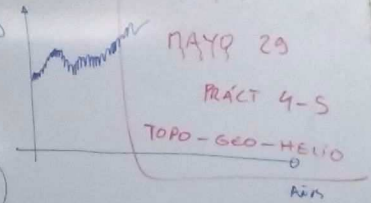 MAYO 29
PRÁCT 4-5
TOPO-GEO-HELIO